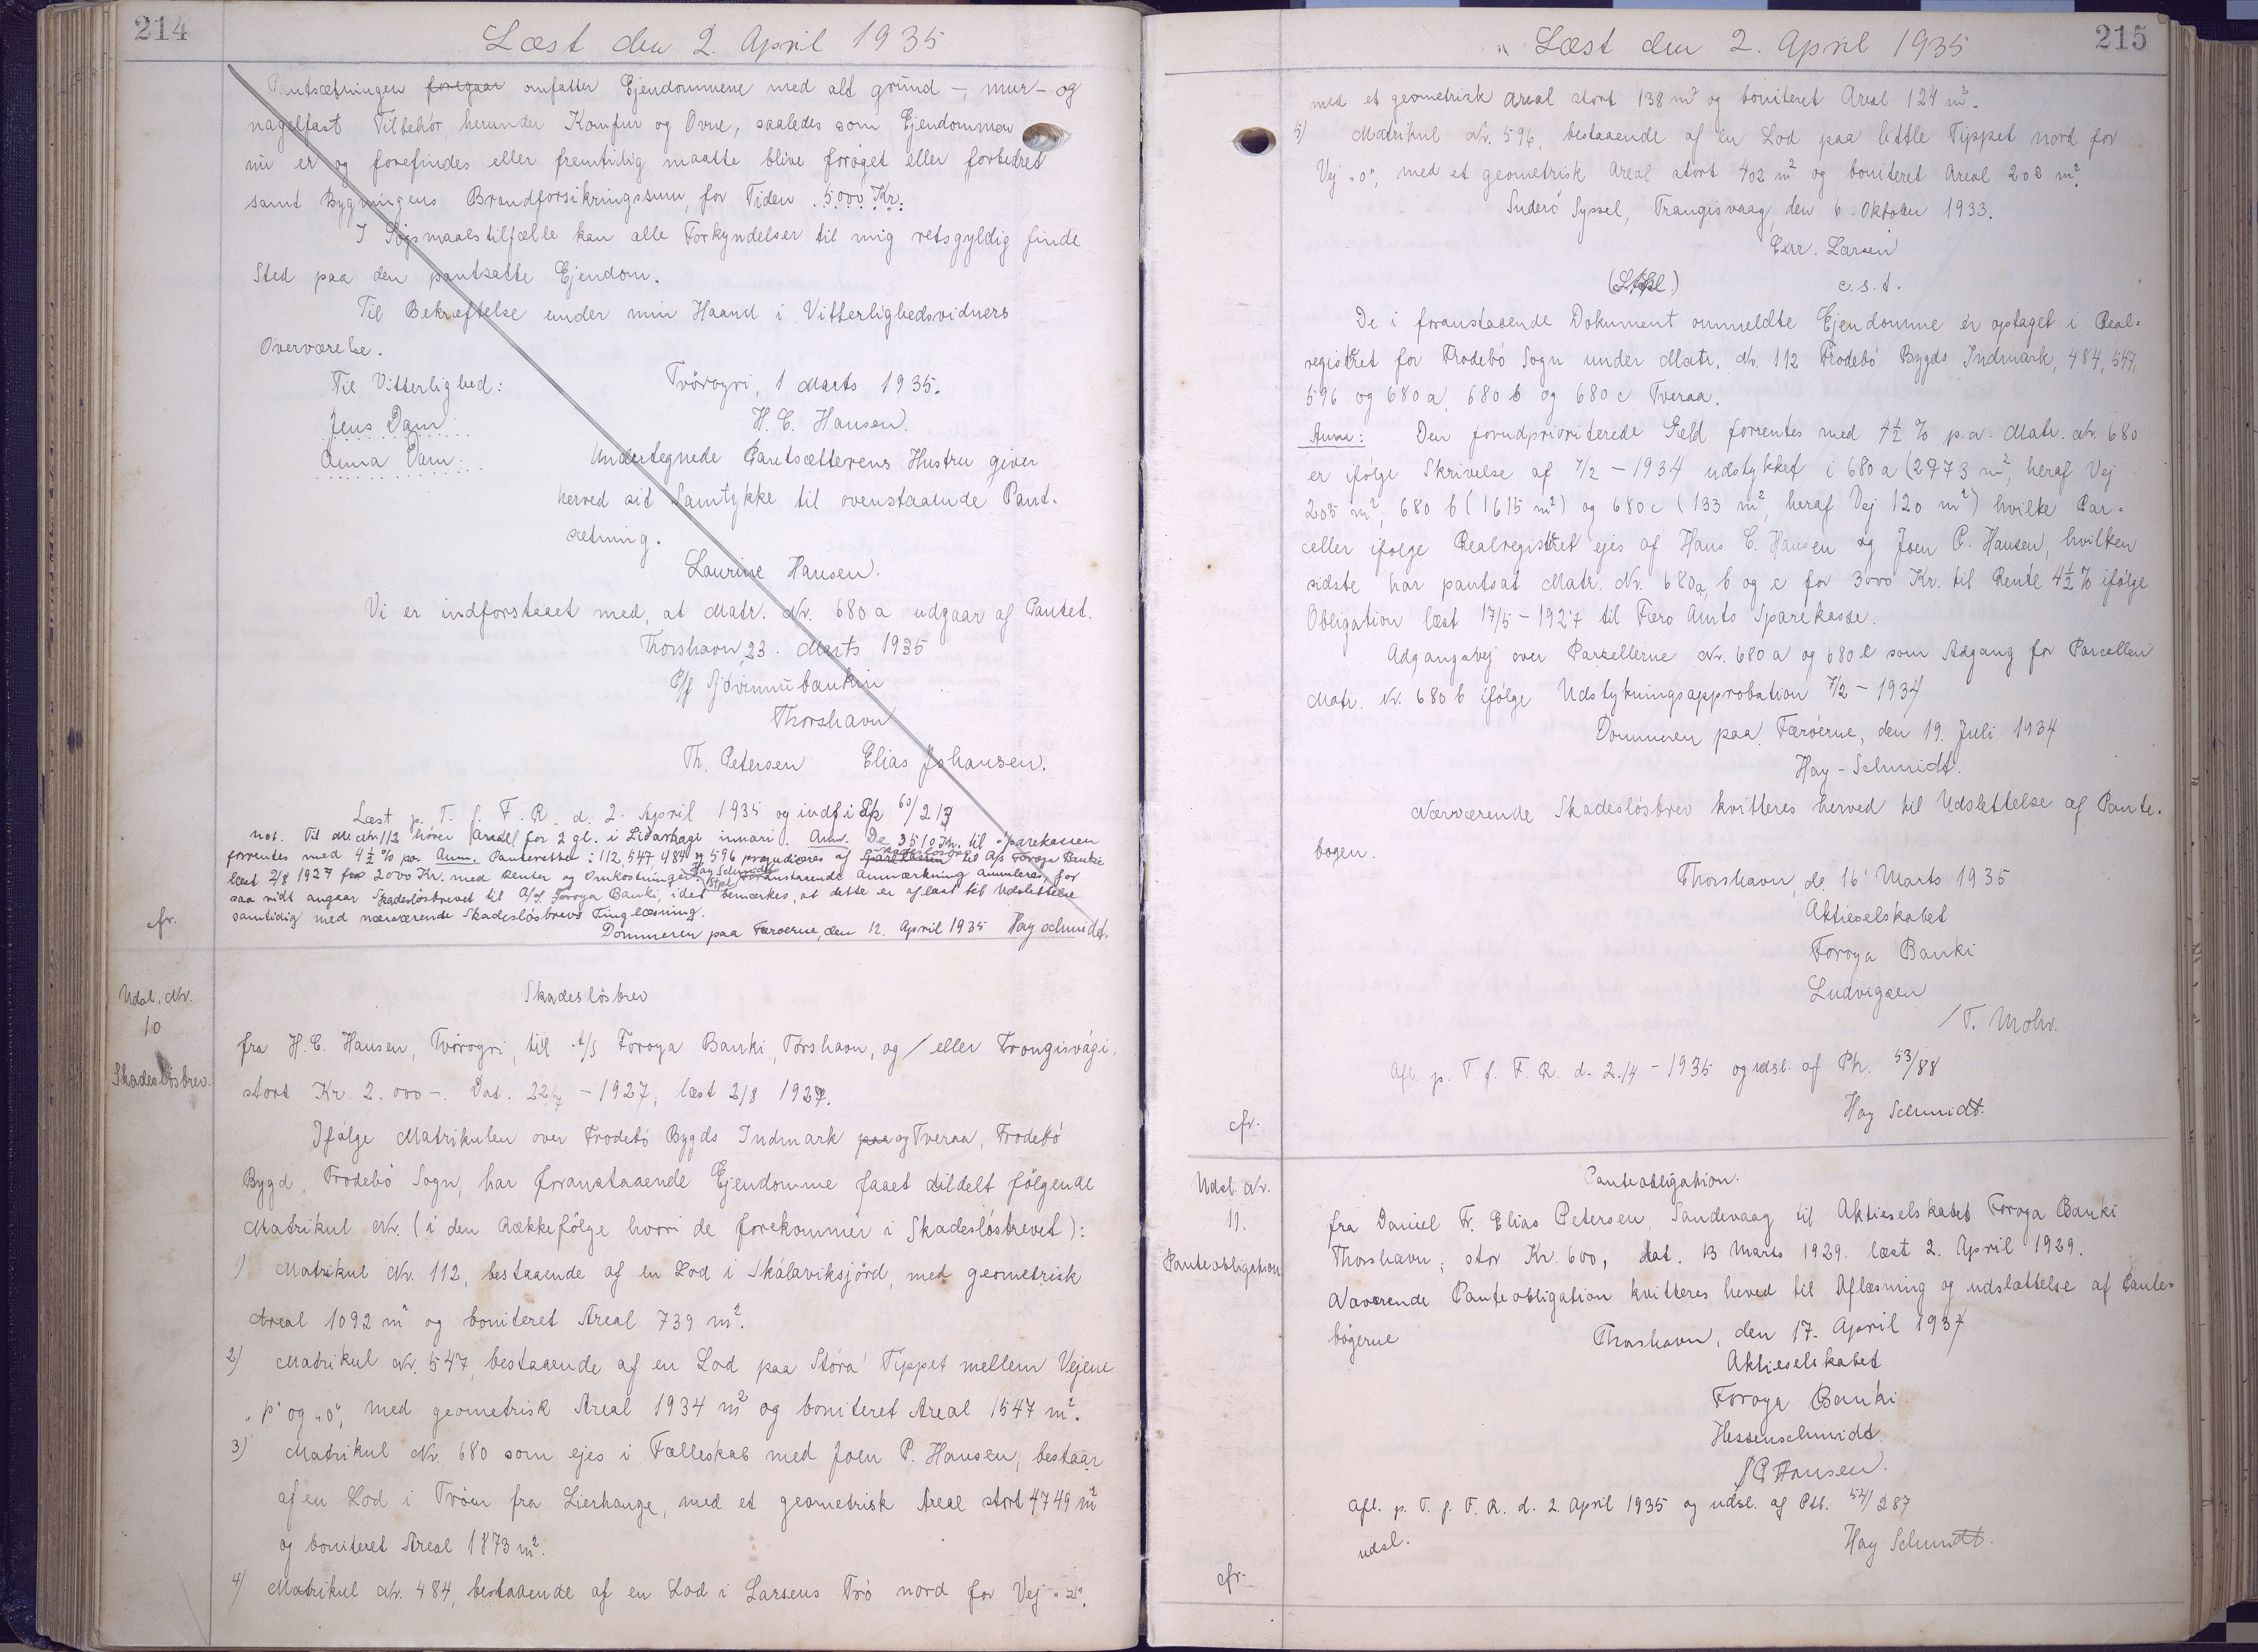 214
Læst den 2. April 1935
Pantsætningen foregaar omfatter Ejendommene med alt grund-, mur- og
nagelfast Tilbehör herunder Komfur og Ovne, saaledes som Ejendommen
nu er og forefindes eller fremtidig maatte blive foröget eller forbedret
samt Bygningens Brandforsikringssum, for Tiden 5000 Kr.
I Sögsmaalstilfælde kan alle Forkyndelser til mig retsgyldig finde
Sted paa den pantsatte Ejendom.
Til Bekræftelse under min Haand i Vitterlighedsvidners
Overværelse.
Til Vitterlighed: Tvöroyri, 1 Marts 1935.
Jens Dam H. C. Hansen.
Anna Dam. Undertegnede Pantsætterens Hustru giver
herved sit Samtykke til ovenstaaende Pant-
sætning.
Laurine Hansen.
Vi er indforstaaet med, at Matr. Nr. 680 a udgaar af Pantet.
Thorshavn, 23. Marts 1935
P/f Sjóvinnubankin
Thorshavn
Th. Petersen Elias Johansen.
Læst p. T. f. F. R. d. 2. April 1935 og indf i Pp 60/213
Not. Til Matr 112 hører Arael for 2 gl. i Lidarhage innari. Anm. De 3510 Kr. til Sparekassen
forrentes med 4½ % pa. Anm. Panteretten i 112, 547 484 og 596 præjudiceres af Skadeslösbrev til A/s Foroya Banki
læst 2/8 1927 for 2000 Kr. med Renter og Omkostninger. Hay Schmidt Stpl. Foranstaaende Anmærkning annuleres, for
saa vidt angaar Skadeslösbrevet til A/S. Foroya Banki, idet bemærkes, at dette er aflæst til Udslettelse
samtidig med nærværende Skadeslösbrevs Tinglæsning.
cfr.
Dommeren paa Færoerne, den 12. April 1935 Hay Schmidt.
Udsl. Nr.
10
Skadeslösbrev.
Skadeslösbrev
fra H. C. Hansen, Tvöroyri, till A/S Foroya Banki, Torshavn, og / eller Trongisvági,
stort Kr. 2.000-. Dat. 22/7 - 1927, læst 2/8 1927.
Ifölge Matrikulen over Frodebö Bygds Indmark paa og Tveraa, Frodebö
Bygd, Frodebö Sogn, har foranstaaende Ejendomme faaet tildelt fölgende
Matrikul Nr. (i den Rækkefölge hvori de forekommer i Skadeslösbrevet):
1) Matrikul Nr. 112, bestaaende af en Lod i Skálaviksjörd, med geometrisk
Areal 1092 m² og boniteret Areal 739 m².
2) Matrikul Nr. 547, bestaaende af en Lod paa Stóra Tippet mellem Vejene
„p" og „o", med geometrisk Areal 1934 m² og boniteret Areal 1547 m².
3) Matrikul Nr. 680 som ejes i Fælleskab med Joen P. Hansen, bestaar
af en Lod i Tröen fra Lierhauge, med et geometrisk Areal stort 4749 m²
og boniteret Areal 1873 m².
4) Matrikul Nr. 484, bestaaende af en Lod i Larsens Trö nord for Vej „z".
215
„ Læst den 2. April 1935
med et geometrisk Areal stort 138 m² og boniteret Areal 124 m².
5) Matrikul Nr. 596, bestaaende af en Lod paa little Tippet nord for
Vej „o", med et geometrisk Areal stort 402 m² og boniteret Areal 203 m².
Suderö Syssel, Trangisvaag, den 6. Oktober 1933.
Enr. Larsen
(Stpl.) c.s.t.
De i foranstaaende Dokument ommeldte Ejendomme er optaget i Real-
registret for Frodebö Sogn under Matr. Nr. 112 Frodebö Bygds Indmark, 484, 547,
596 og 680 a, 680 b og 680 c Tveraa.
Anm: Den forudprioriterede Gæld forrentes med 4½ % p.a. Matr. Nr. 680
er ifölge Skrivelse af 7/2 - 1934 udstykket i 680 a (2973 m², heraf Vej
205 m², 680 b (1615 m²) og 680 c (133 m², heraf Vej 120 m²) hvilke Par-
celler ifolge Realregistret ejes af Hans C. Hansen og Joen P. Hansen, hvilken
sidste har pantsat Matr. Nr. 680a, b og c for 3000 Kr. til Rente 4½ % ifölge
Obligation læst 17/5 - 1927 til Færo Amts Sparekasse.
Adgangsvej over Parcellerne Nr. 680 a og 680 c som Adgang for Parcellen
Matr. Nr. 680 b ifölge Udstykningsapprobation 7/2 - 1934
Dommeren paa Færöerne, den 19. Juli 1934
Hay-Schmidt.
Nærværende Skadeslösbrev kvitteres herved til Udslettelse af Pante-
bogen.
Thorshavn, d. 16' Marts 1935
Aktieselskabet
Foroya Banki
Ludvigsen
/T. Mohr.
Afl. p. T. f. F. R. d. 2./4 - 1935 og udsl. af Ph. 53/88
Hay Schmidt.
cfr.
Udsl. Nr.
11.
Panteobligation
Panteobligation.
fra Daniel Fr. Elias Petersen, Sandevaag til Aktieselskabet Foroya Banki
Thorshavn, stor Kr. 600, dat. 13 Marts 1929. læst 2. April 1929.
Naværende Panteobligation kvitteres heved til Aflæsning og udslættelse af Pante-
bögerne Thorshavn, den 17. April 1937
Aktieselskabet
Foroya Banki
Hessenschmidt.
J P Hansen.
Afl. p. T. f. F. R. d. 2 April 1935 og udsl. af Ptb. 52/287
udsl. Hay Schmidt.
cfr.